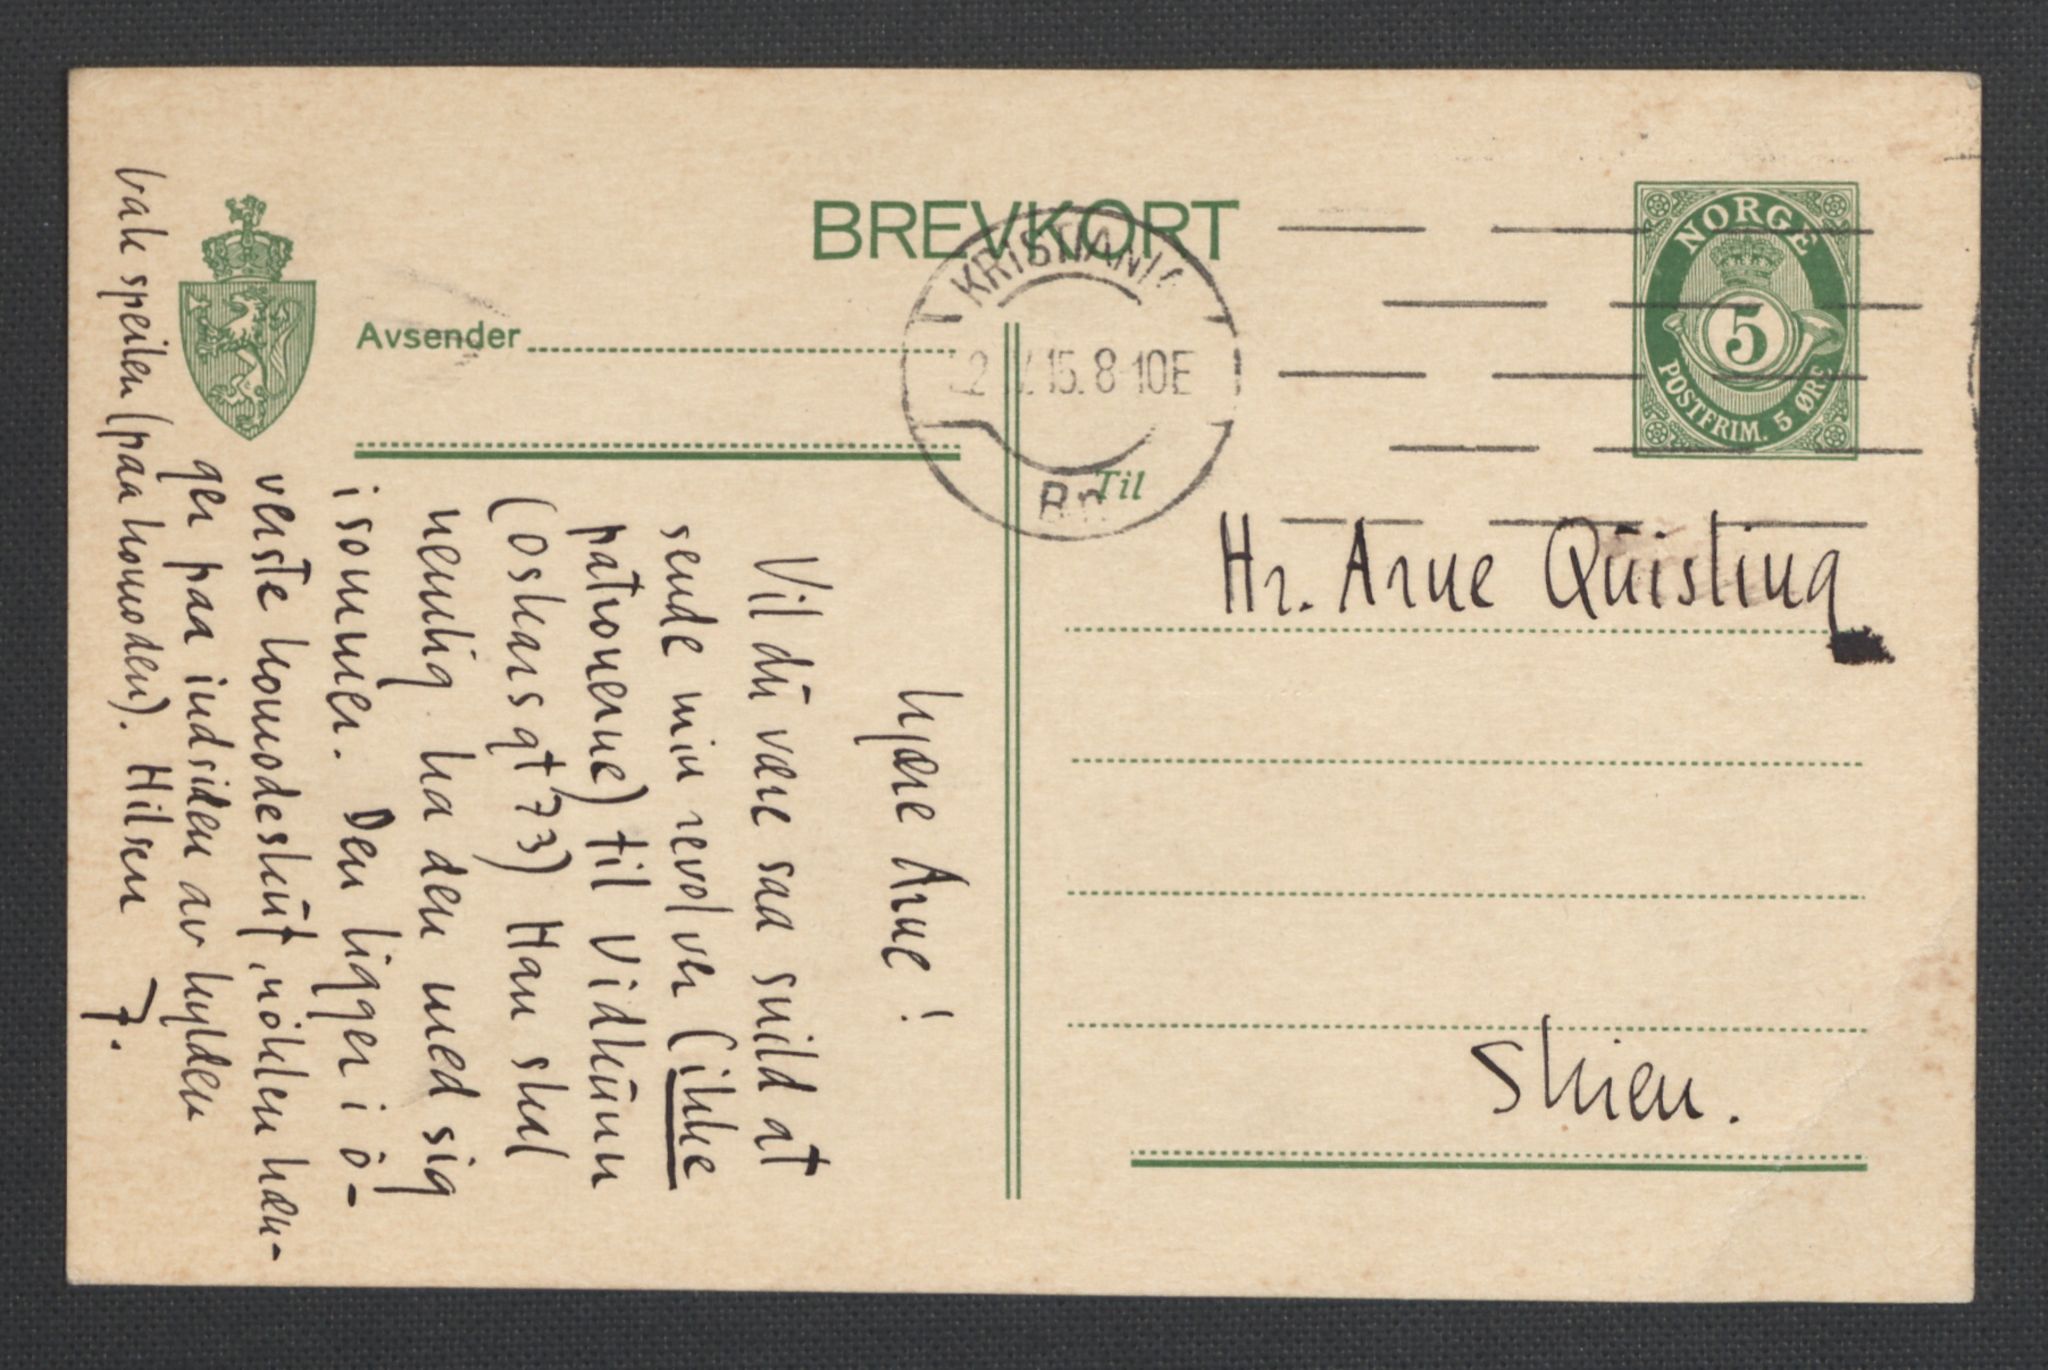 BREVKORT
NORGE
5
POSTFRIM. 5 ØRE
KRISTIANIA
15. 8-10E
Br
Avsender
Til
Hr. Arne Quisling
Skien.
Kjære Arne!
Vil du være saa snild at
sende min revolver (ikke
patronerne) til Vidkunn
(Oskarsgt 73) Han skal
nemlig ha den med sig
i sommer. Den ligger i ö-
verste komodeskuf, nöklen hæn-
ger paa indsiden av hylden
bak speilen (paa komoden). Hilsen J.